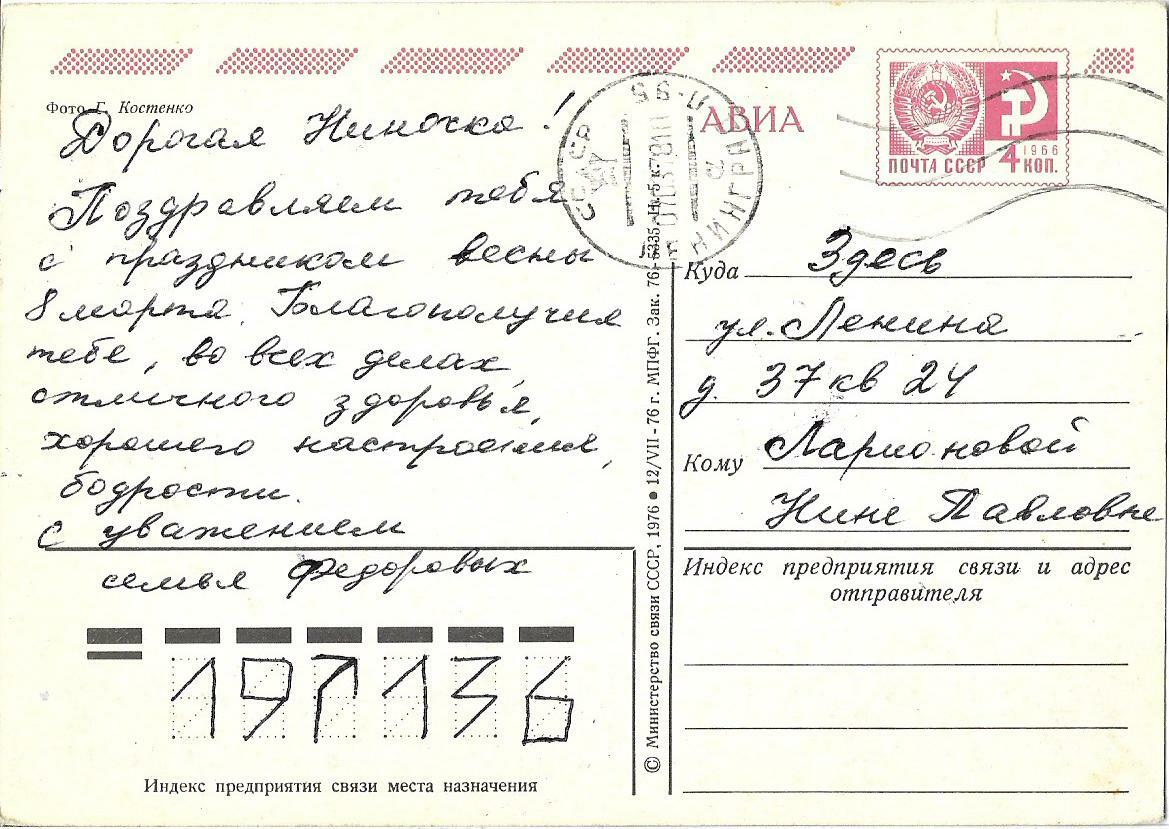 Фото Г. Костенко
Дорогая Ниночка!
Поздравляем тебя
с праздником весны
8 марта. Благополучия
тебе, во всех делах,
отличного здоровья,
хорошего настроения,
бодрости.
С уважением
семья Федоровых
197136
Индекс предприятия связи места назначения
© Министерство связи СССР, 1976 ● 12/VII-76 г. МПФГ. Зак. 76-6335.
АВИА
СССР
ПОЧТА СССР
1966
4 КОП.
Куда Здесь
ул. Ленина
д. 37 кв 24
Кому Ларионовой
Нине Павловне
Индекс предприятия связи и адрес
отправителя